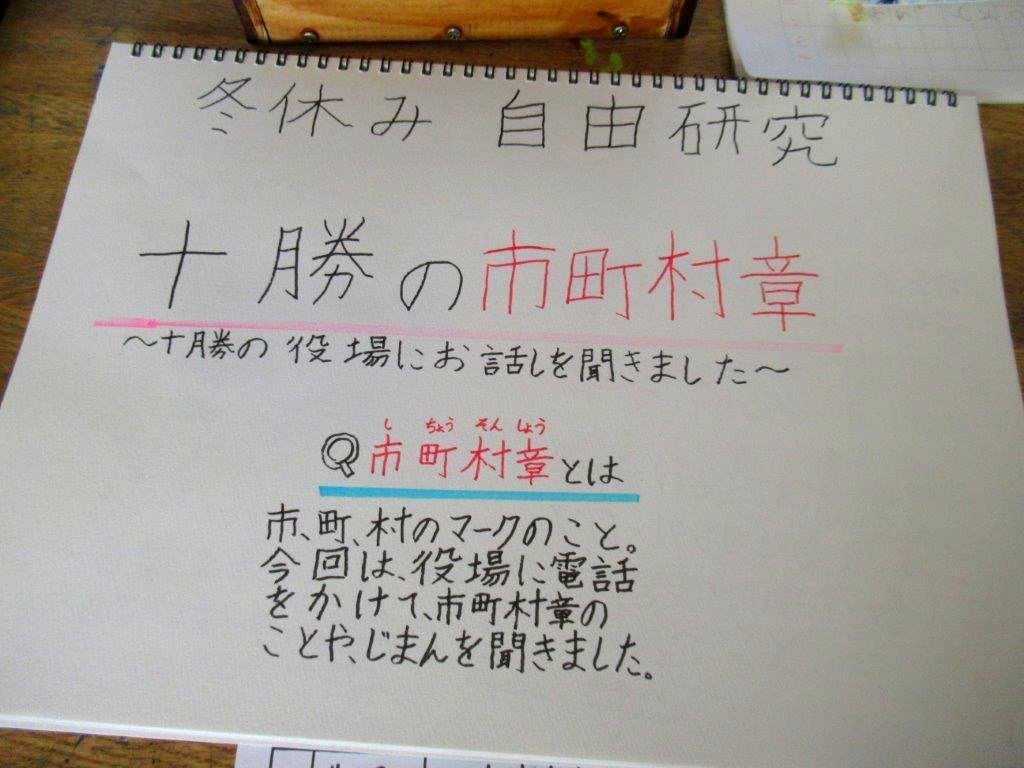 冬休み 自由研究
十勝の市町村章
～十勝の役場にお話しを聞きました～
し ちょう そん しょう
Q市町村章とは
市、町、村のマークのこと。
今回は、役場に電話
をかけて、市町村章の
ことや、じまんを聞きました。